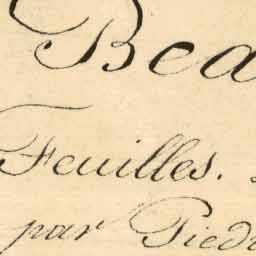 Bea
Feuilles.
par Pied